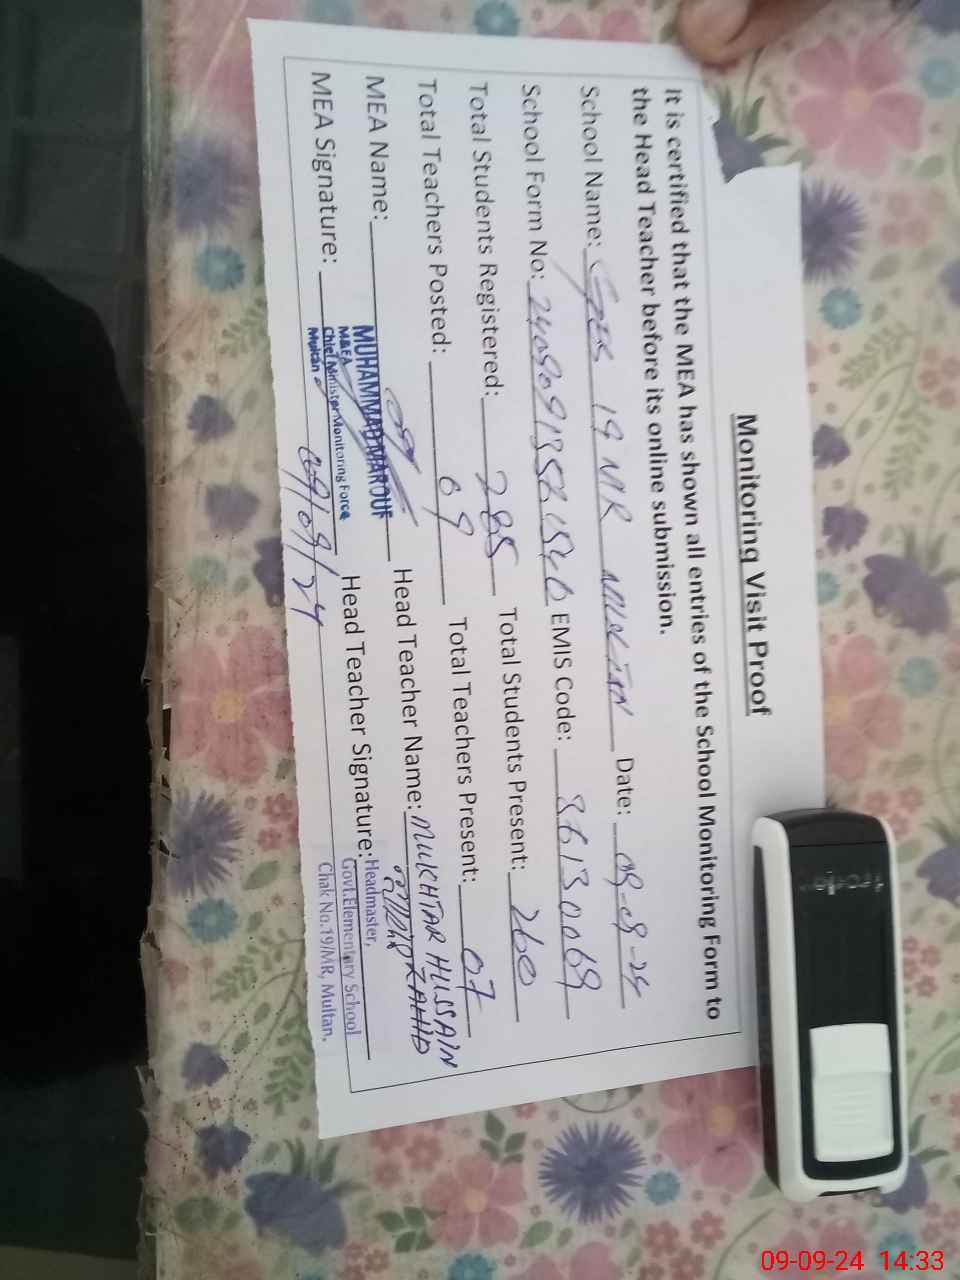 Monitoring Visit Proof
It is certified that the MEA has shown all entries of the School Monitoring Form to
the Head Teacher before its online submission.
School Name: 19 MR MULTAN Date: 09-09-24
School Form No: EMIS Code: 36130069
Total Students Registered: 285 Total Students Present: 260
Total Teachers Posted: 09 Total Teachers Present: 07
MEA Name: MUHAMMAD MAROUF Head Teacher Name: MUKHTAR HUSSAIN ZAHID
M&EA
Chief Minister Monitoring Force
Multan
MEA Signature: 09/09/24 Head Teacher Signature:
Headmaster,
Govt.Elementary School
Chak No.19/MR, Multan.
09-09-24 14:33